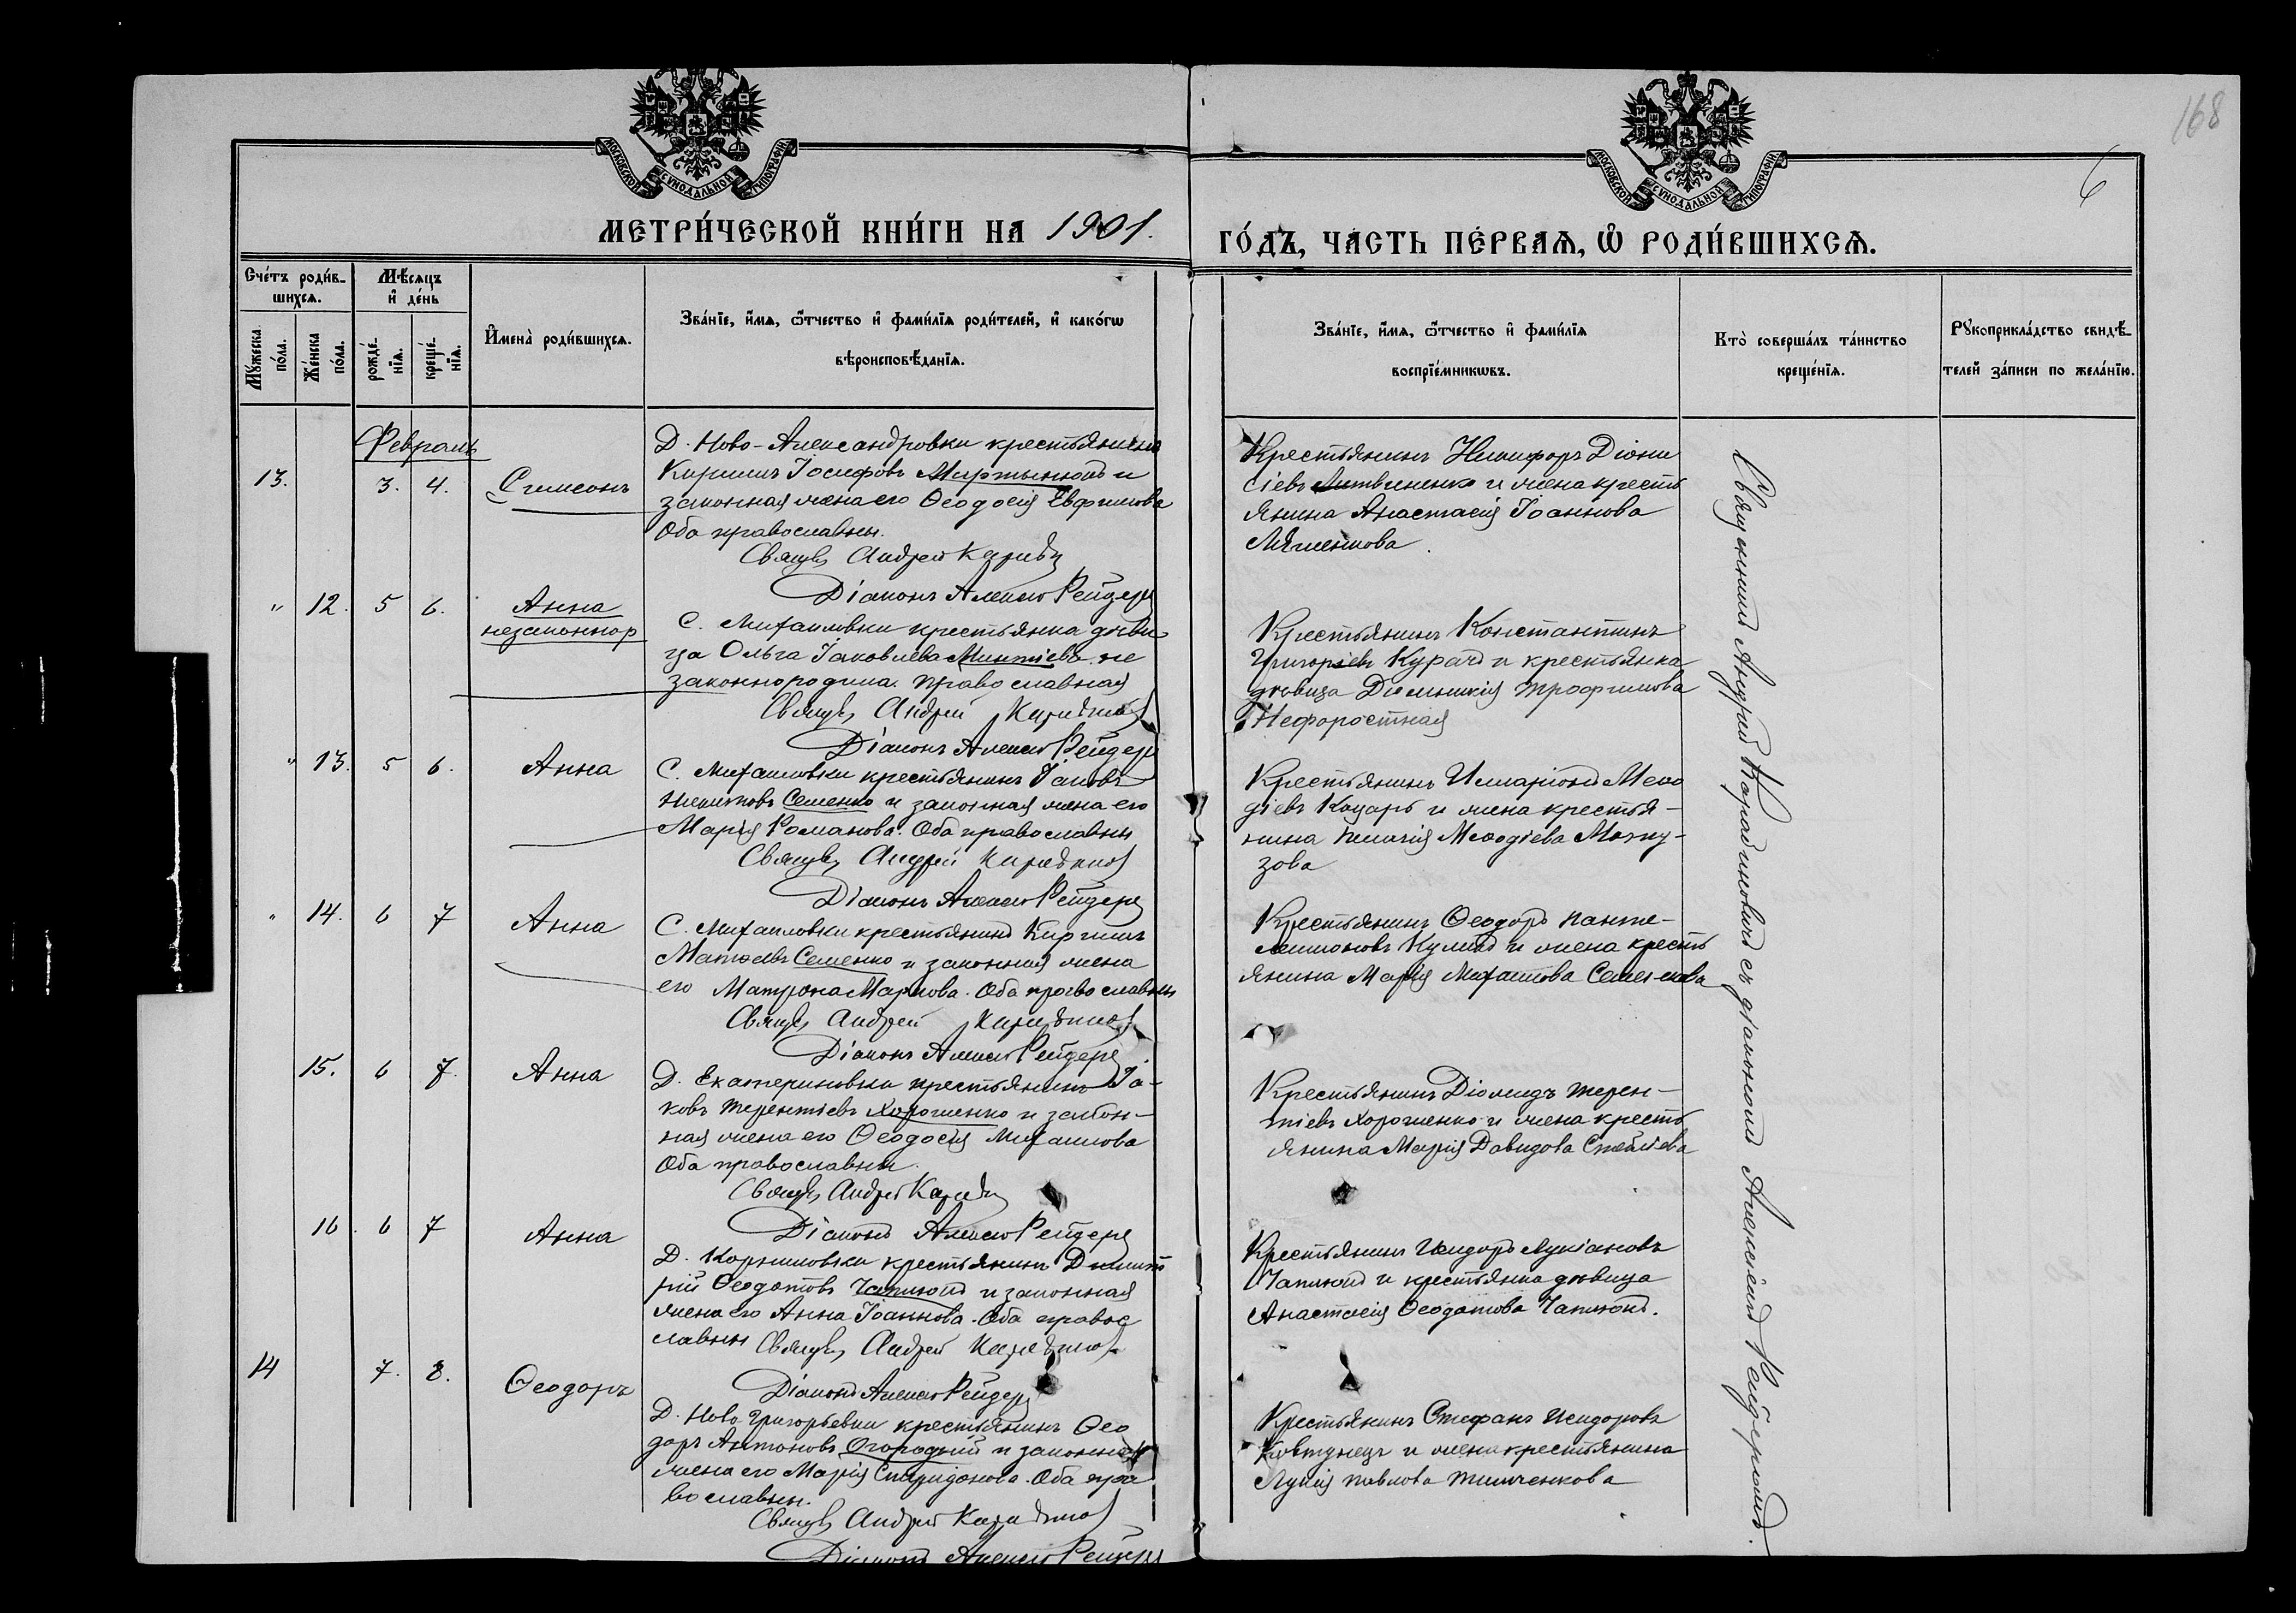 168
6
МОСКОВСКОЙ СѴНОДАЛЬНОЙ ТИПОГРАФІИ
МОСКОВСКОЙ СѴНОДАЛЬНОЙ ТИПОГРАФІИ
МЕТРИ́ЧЕСКОЙ КНИ́ГИ НА 1901.
ГО́ДЪ, ЧА́СТЬ ПЕ́РВАѦ, Ѡ҆ РОДИ́ВШИХСѦ.
Сче́тъ роди́в-
шихсѧ.
Мѣ́сѧцъ
и҆ де́нь
Мꙋ́жеска
по́ла.
Же́нска
по́ла.
рожде́-
нїѧ.
креще́-
нїѧ.
И҆мена̀ роди́вшихсѧ.
Зва́нїе, и҆́мѧ, ѻ҆́тчество и҆ фами́лїѧ роди́телей, и҆ како́гѡ
вѣроисповѣ́данїѧ.
Зва́нїе, и҆́мѧ, ѻ҆́тчество и҆ фами́лїѧ
воспрїе́мникѡвъ.
Кто̀ соверша́лъ та́инство
креще́нїѧ.
Рꙋкоприкла́дство свидѣ́-
телей за́писи по жела́нїю.
Февраль
13. 3. 4. Симеонъ
Д. Ново-Александровки крестьянинъ
Кириллъ Іосифовъ Мартынюкъ и
законная жена его Ѳеодосія Евфимова
Оба православны.
Свящ. Андрей
Діаконъ Алексій Рейдеръ
Крестьянинъ Никифоръ Діони
сіевъ Литвиненко и жена кресть
янина Анастасія Іоаннова
" 12. 5 6. Анна
незаконнор
С. Михайловки крестьянка дѣви
ца Ольга Іаковлева не
законнородила. Православная
Свящ. Андрей
Діаконъ Алексій Рейдеръ
Крестьянинъ Константинъ
Григоріевъ Курачъ и крестьянка
дѣвица Трофимова
Нефоростная
" 13. 5 6. Анна
С. Михайловки крестьянинъ Іаковъ
Никитовъ Семенко и законная жена его
Марія Романова. Оба православны
Свящ. Андрей
Діаконъ Алексій Рейдеръ
Крестьянинъ Иларіонъ Меѳо
діевъ Коцарь и жена крестья-
нина Меѳодіева
зова
" 14. 6 7 Анна
С. Михайловки крестьянинъ Кириллъ
Матѳеевъ Семенко и законная жена
его Матрона Маркова. Оба православны
Свящ. Андрей
Діаконъ Алексій Рейдеръ
Крестьянинъ Ѳеодоръ Панте-
леимоновъ и жена кресть
янина Марія Михаилова Семенкова
15. 6 7. Анна
Д. Екатериновки крестьянинъ Іа-
ковъ Терентіевъ Хорошенко и закон-
ная жена его Ѳеодосія Михаилова
Оба православны.
Свящ. Андрей
Діаконъ Алексій Рейдеръ
Крестьянинъ Діомидъ Терен-
тіевъ Хорошенко и жена кресть
янина Марія Давидова
16. 6 7 Анна
Д. Корниловки крестьянинъ Димит
рій Ѳеодотовъ Чаплюкъ и законная
жена его Анна Іоаннова. Оба правос
лавны Свящ. Андрей
Діаконъ Алексій Рейдеръ
Крестьянинъ Исидоръ Лукіановъ
Чаплюкъ и крестьянка дѣвица
Анастасія Ѳеодотова Чаплюкъ.
14 7. 8. Ѳеодоръ
Д. Ново-Григорьевки крестьянинъ Ѳео
доръ Антоновъ Огородній и законная
жена его Марія Спиридонова. Оба пра
вославны.
Свящ. Андрей
Діаконъ Алексій Рейдеръ
Крестьянинъ Стефанъ Исидоровъ
Ковтунецъ и жена крестьянина
Лукія Павлова Тимченкова
Священникъ Андрей Карабиновичъ съ діакономъ Алексіемъ Рейдеромъ.